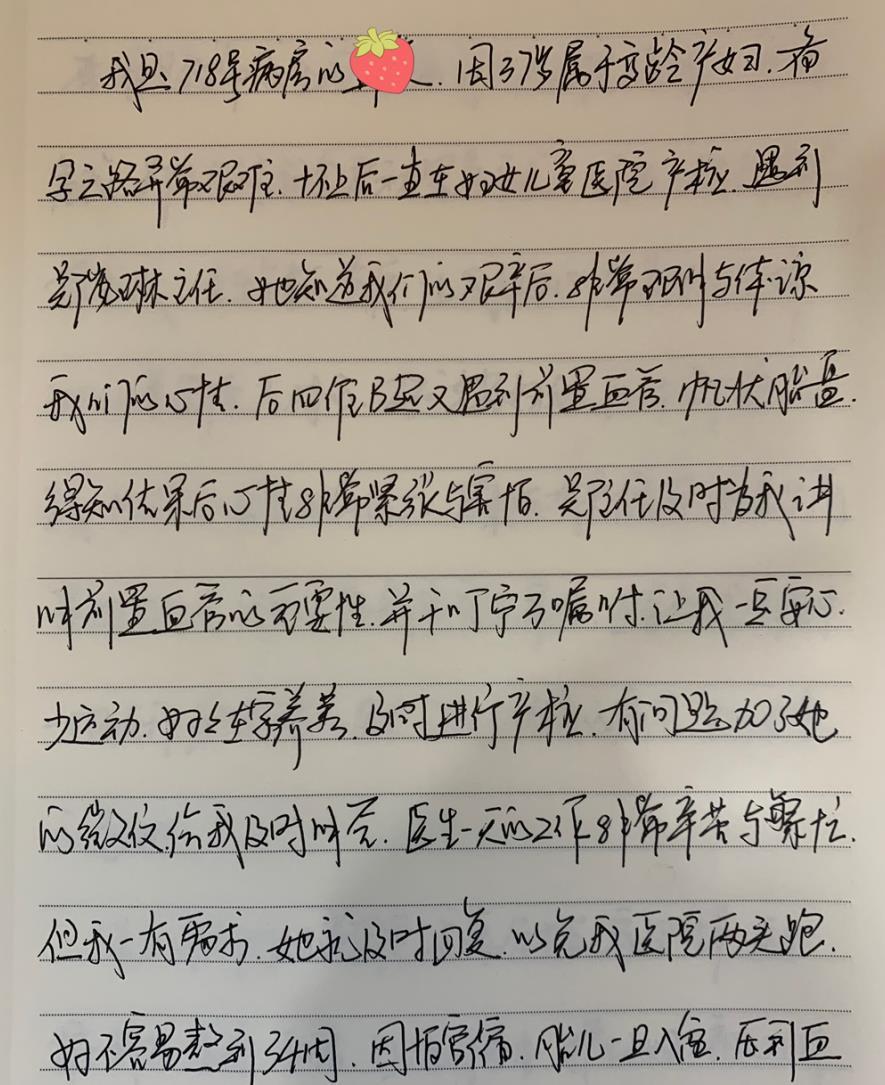 我是718号病房的 因37岁属于高龄产妇.备
孕之路异常艰难.怀上后一直在妇女儿童医院产检.遇到
吴 琳主任.她知道我们的艰辛后.非常理解与体谅
我们的心情.后四维B超又遇到前置血管.帆状胎盘.
得知结果后心情非常紧张与害怕.吴主任及时为我讲
解前置血管的重要性.并千叮宁万嘱咐.让我一定要安心.
少运动.好好在家养着.及时进行产检.有问题加了她
的微信.给我及时解答.医生一天的工作非常辛苦与繁忙.
但我一有需求.她就及时回复.以免我医院两头跑.
好不容易熬到34周.因怕宫缩.胎儿一旦入盆.压到血